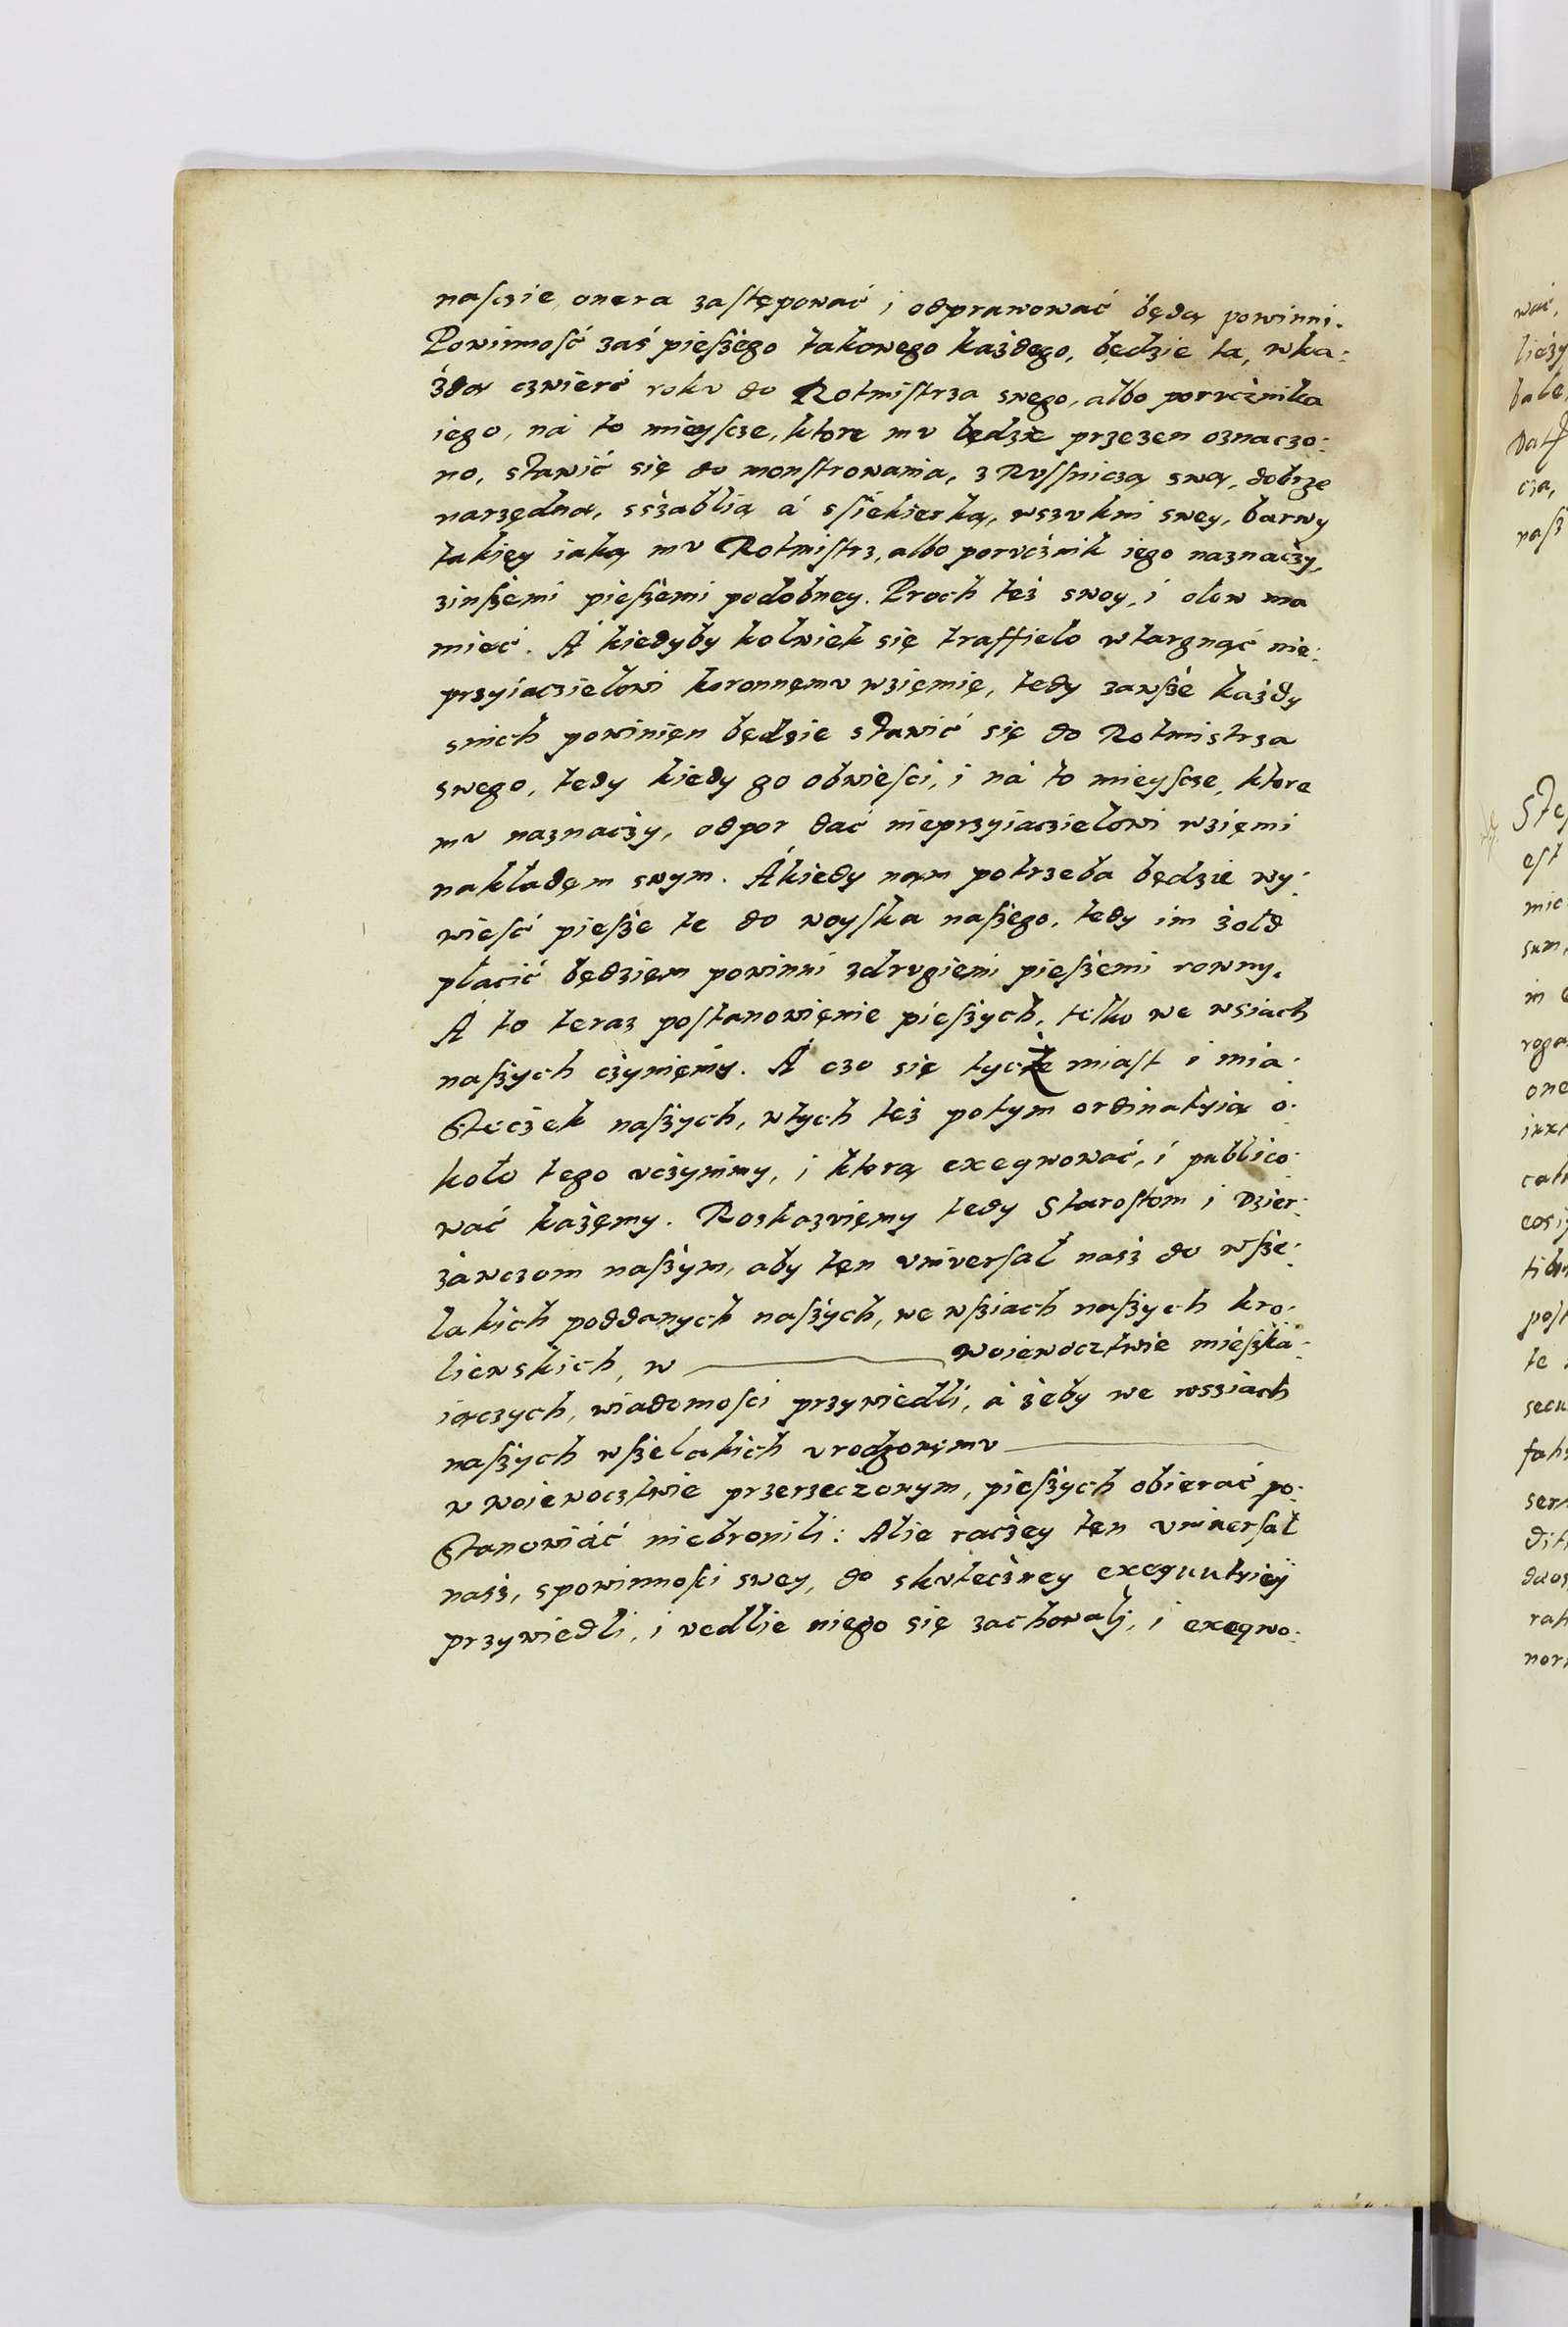 naſczie onera zaſtępować i odprawować będą powinni.
Powinność zaś pieſzego takowego każdego, będzie ta, wka:
żdą czwierć roku do Rotmiſtrza swego, albo porucznika
iego, ná to mieyſcze, ktore mv będzie przezen oznaczo:
no, sławić się do monſtrowania, z Ruſſniczą swą, dobrze
narzędną, sszablią á sſiekierką, wszukni swey, barwy
takięy iaką mv Rotmiſtrz, albo porucznik iego naznaczy,
zinſzemi pieſzemi podobney. Proch też swoy, i ołow ma
mieć. Á kiedyby kolwiek się traffieło wtargnąć nie:
przyiaczielowi koronnęmv wzięmię, tedy zawſze każdy
snich powinięn będzie sławić się do Rotmistrza
swego, tedy kiedy go obwieſci, i ná to mieyſcze, ktore
mv naznaczy, odpor dać nieprzyiaczielowi wzięmi
nakładęm swym. Ákiedy nąm potrzeba będzie wy:
wieſć pieſze te do woyſka naſzego, tedy im żołd
płacić będzięm powinni zdrugiemi pieſzemi rowny.
Á to teraz poſtanowięnie pieſzych, telko we wsiach
naſzych czyniemy. Á czo się tycze miaſt i mia:
ſteczek naſzych, wtych też potym ordinatyią o:
koło tego vczynimy, i ktorą exeqwować, i publico:
wać każęmy. Roskazvięmy tedy Staroſtom i Dzier:
żawczom naſzym, aby tęn vniverſał nasz do wſze:
lakich poddanych naſzych, we wſziach naſzych kro:
liewskich, w woiewocztwie mieſzka:
iączych, wiadomoſci przywiedli, á żeby we wssiach
naſzych wſzelakich vrodzonęmv
w woiewocztwie przerzeczonym, pieſzych obierać po:
ſtanowiáć niebronili: Alie raczey tęn vniverſał
nasz, spowinnoſci swey, do skuteczney exequutyiey
przywiedli, i vedlie niego się zachowali, i exeqwo:
wać,